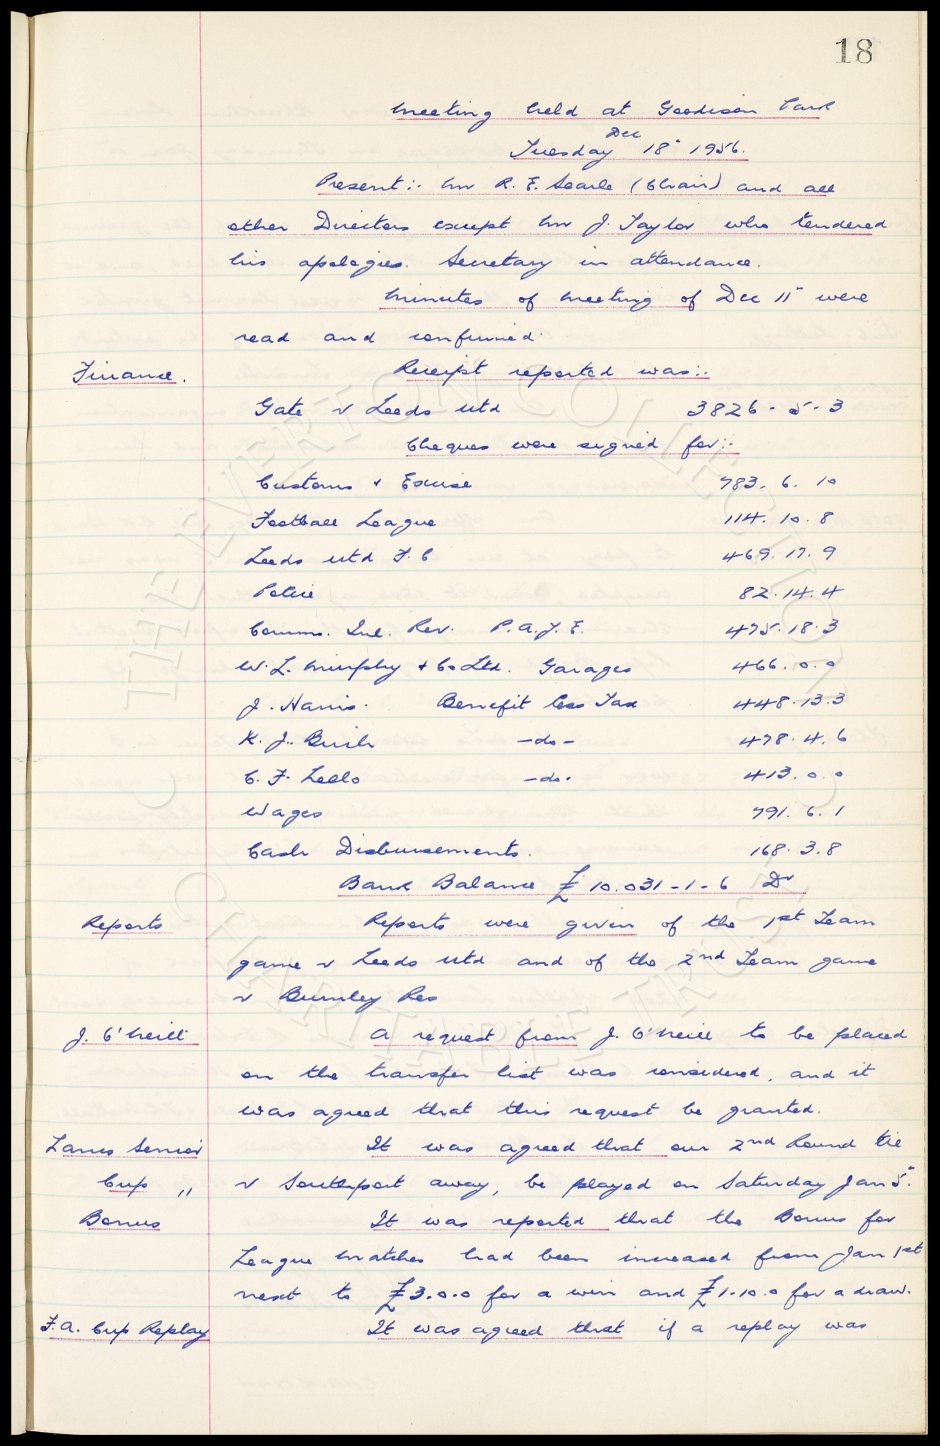 18
Meeting held at Goodison Park
Tuesday Dec 18" 1956.
Present:- Mr R. E. Searle (Chair) and all
other Directors except Mr J. Taylor who tendered
his apologies. Secretary in attendance.
Minutes of Meeting of Dec 11" were
read and confirmed.
Finance. Receipt reported was:-
Gate v Leeds Utd 3826 - 5 - 3
Cheques were signed for:-
Customs & Excise 783. 6. 10
Football League 114. 10. 8
Leeds Utd F.C 469. 17. 9
Police 82. 14. 4
Comms. Inl. Rev. P.A.Y.E. 475. 18. 3
W. L. Murphy & Co Ltd. Garages 466. 0. 0
J. Harris. Benefit less Tax 448. 13. 3
K. J. Birch -do- 478. 4. 6
C. F. Lello -do- 413. 0. 0
Wages 791. 6. 1
Cash Disbursements. 168. 3. 8
Bank Balance £10.031 - 1 - 6 Dr
Reports Reports were given of the 1st Team
game v Leeds Utd and of the 2nd Team game
v Burnley Res
J. O'Neill A request from J. O'Neill to be placed
on the transfer list was considered, and it
was agreed that this request be granted.
Lancs Senior It was agreed that our 2nd Round tie
Cup " v Southport away, be played on Saturday Jan 5".
Bonus It was reported that the Bonus for
League matches had been increased from Jan 1st
next to £3.0.0 for a win and £1.10.0 for a draw.
F.A. Cup Replay It was agreed that if a replay was
THE EVERTON COLLECTION
CHARITABLE TRUST
©